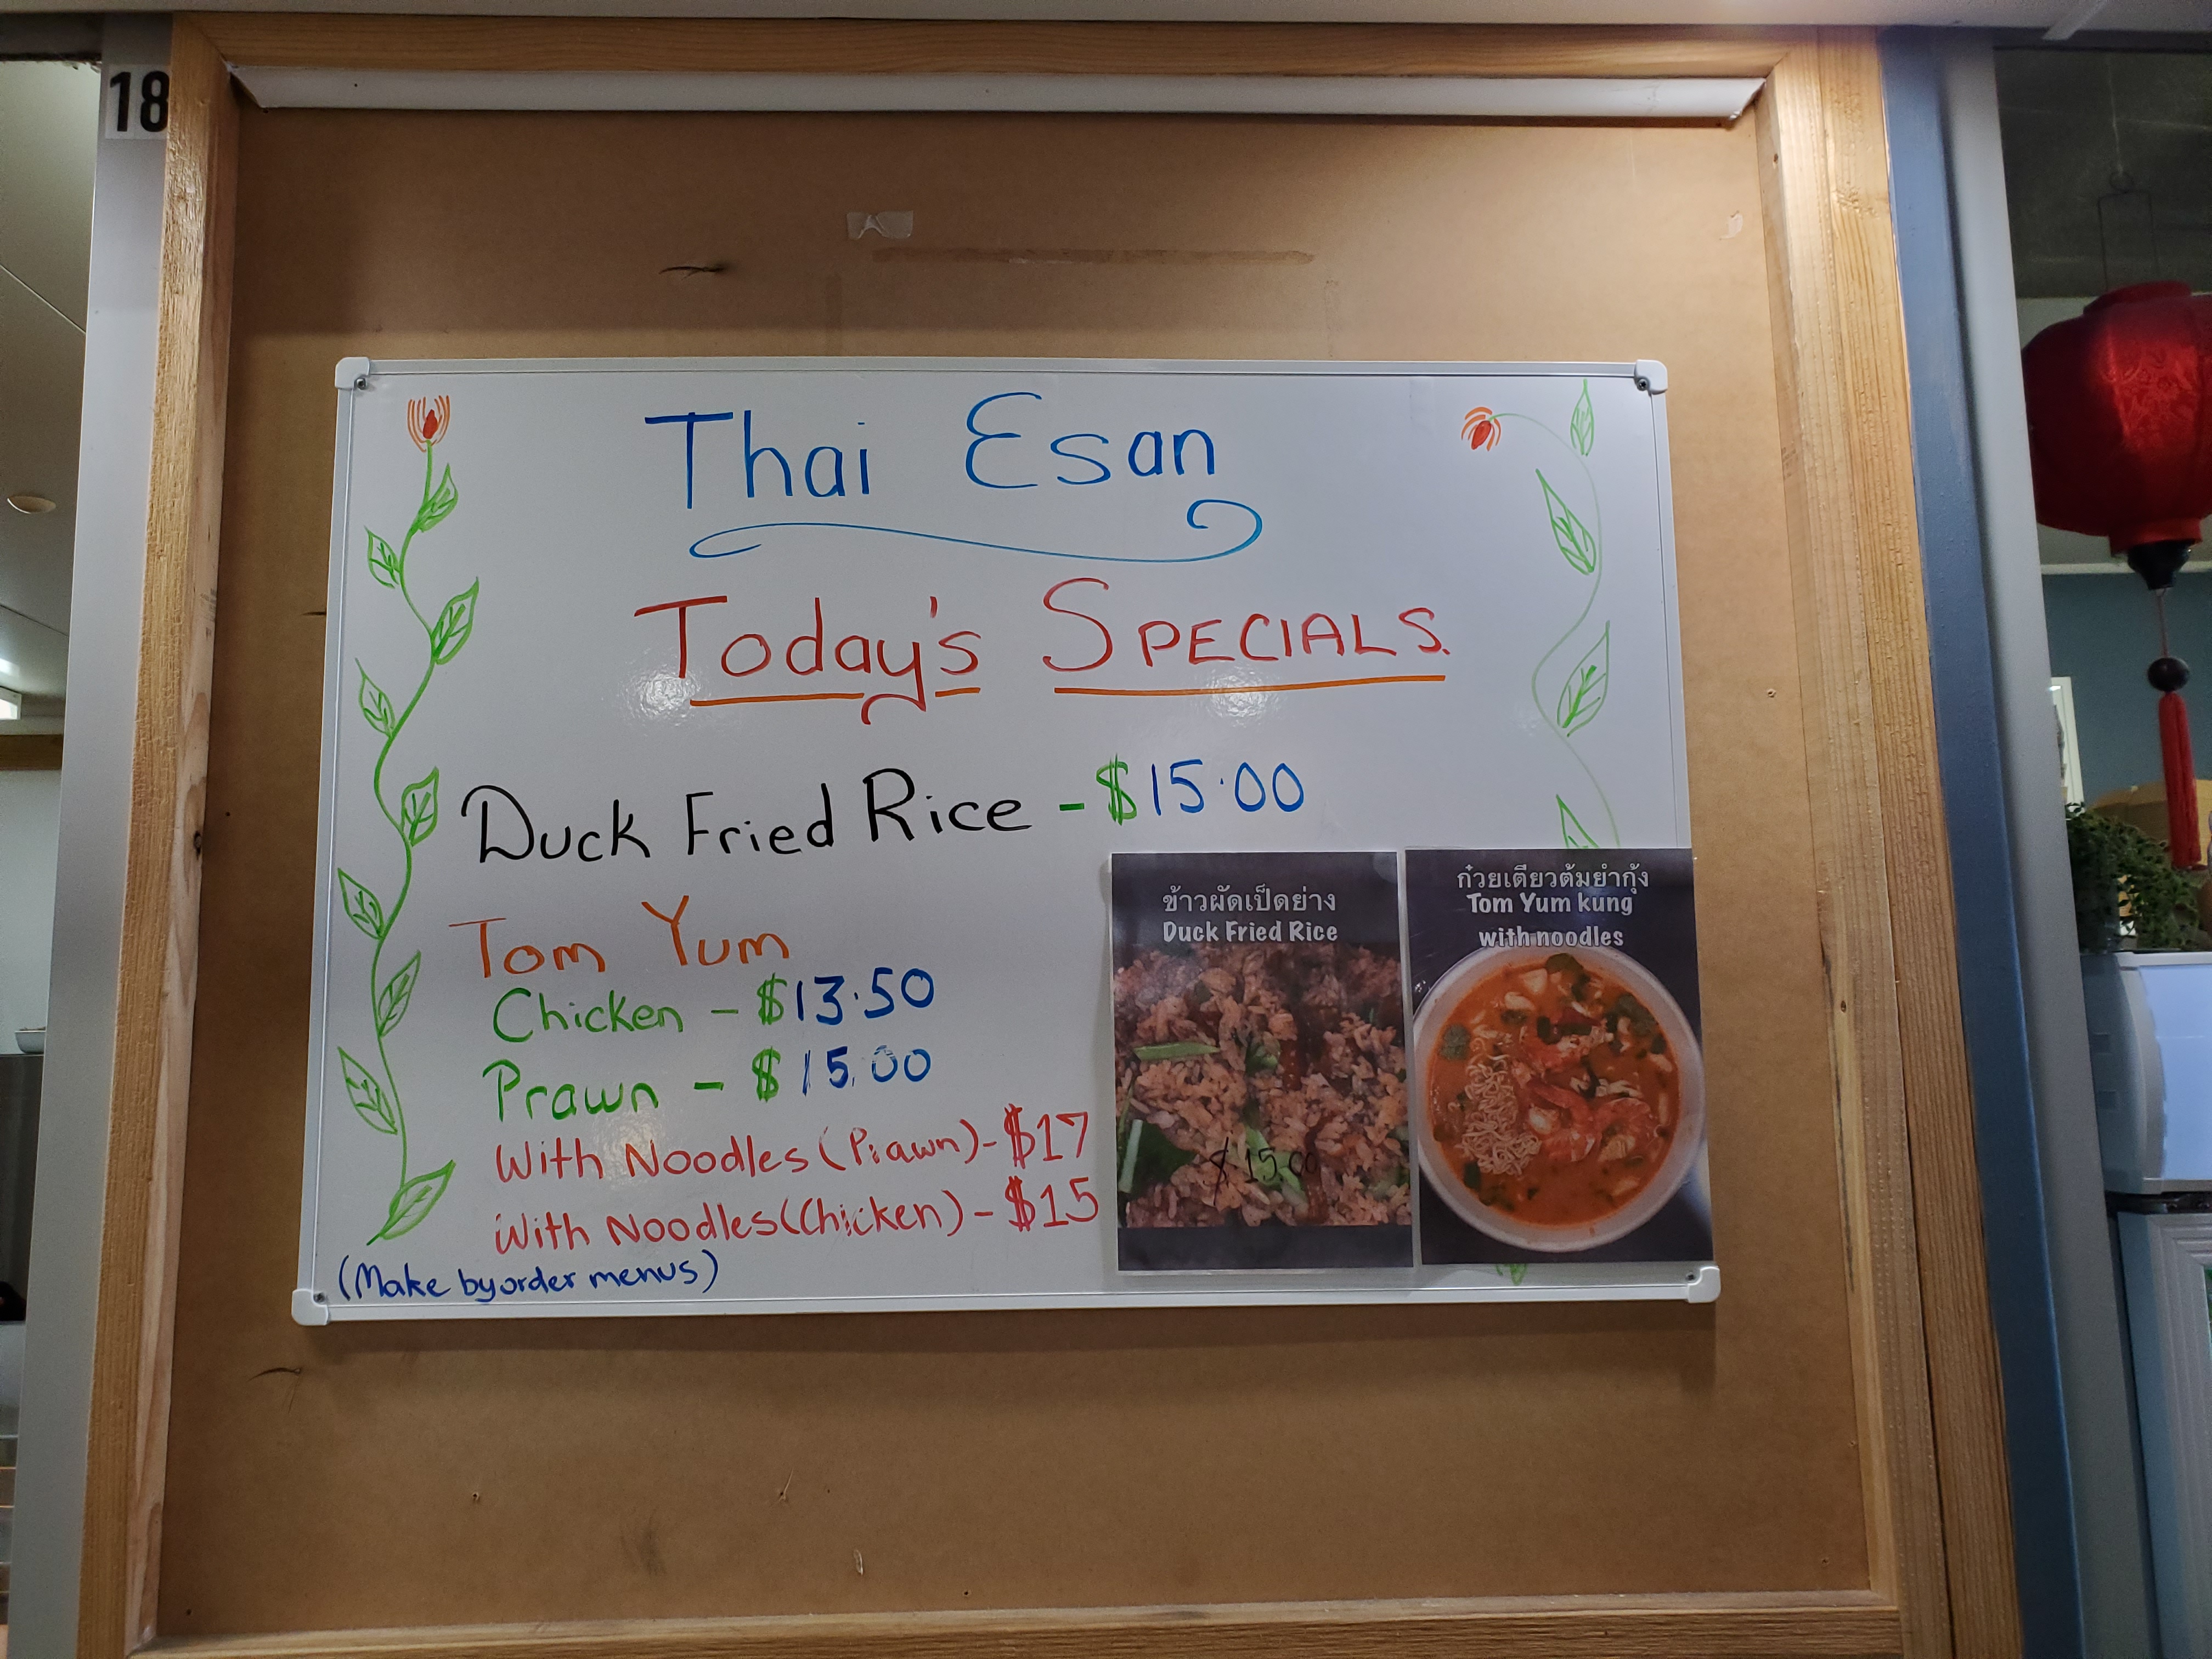 18
Thai Esan
Today's SPECIALS.
Duck Fried Rice - $15.00
Tom Yum
Chicken - $13.50
Prawn - $15.00
With Noodles (Prawn) - $17
With Noodles (Chicken) - $15
(Make by order menus)
ข้าวผัดเป็ดย่าง
Duck Fried Rice
$15.00
ก๋วยเตียวต้มยำกุ้ง
Tom Yum kung
with noodles